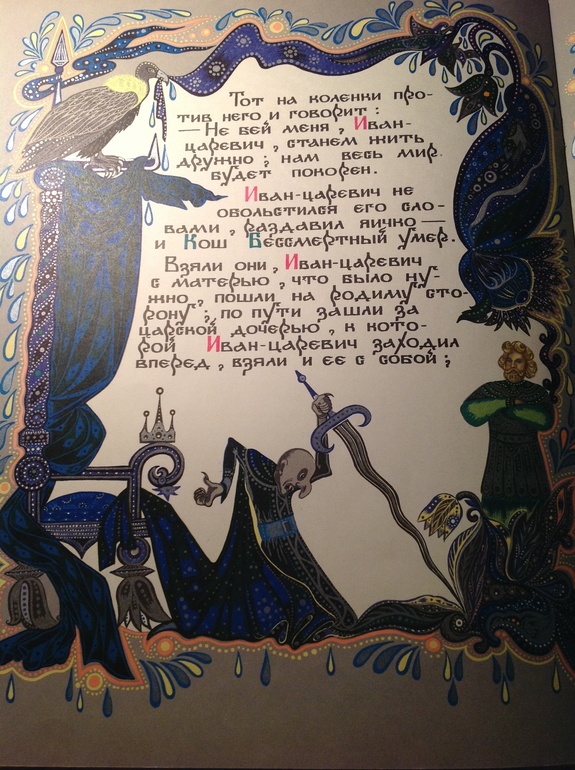 Тот на коленки про-
тив него и говорит:
— Не бей меня, Иван-
царевич, станем жить
дружно; нам весь мир
будет покорен.
Иван-царевич не
обольстился его сло-
вами, раздавил яичко —
и Кош Бессмертный умер.
Взяли они, Иван-царевич
с матерью, что было ну-
жно, пошли на родиму сто-
рону; по пути зашли за
царской дочерью, к кото-
рой Иван-царевич заходил
вперед, взяли и ее с собой;